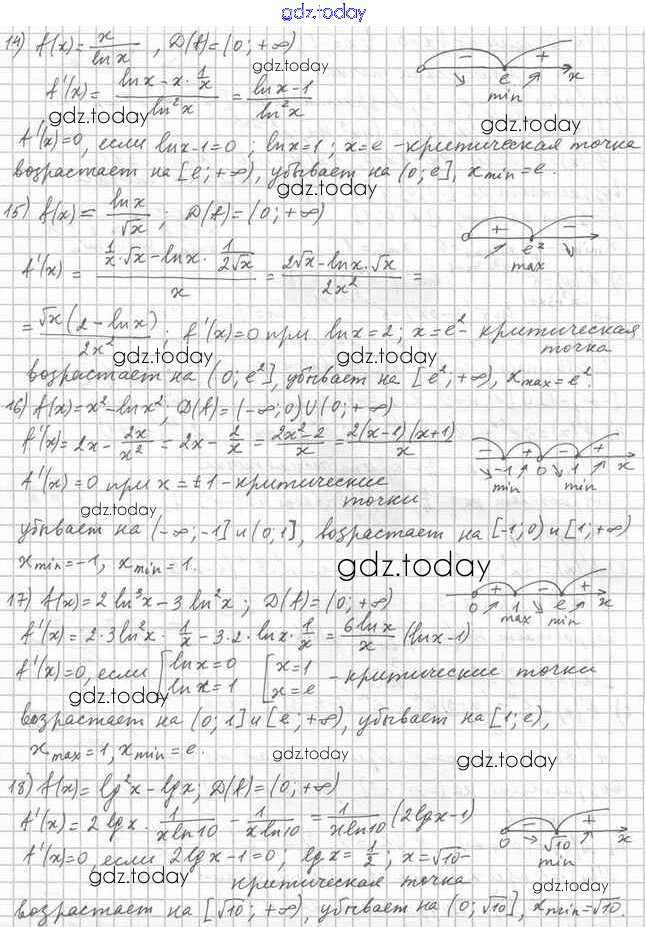 gdz.today
14) f(x) = x / ln x , D(f) = (0; +∞)
f'(x) = (ln x − x · 1/x) / ln²x = (ln x − 1) / ln²x
− + e min x
gdz.today
gdz.today
gdz.today
f'(x)=0, если ln x−1=0 ; ln x=1 ; x=e - критическая точка
возрастает на [e; +∞), убывает на (0; e], x min = e.
gdz.today
15) f(x) = ln x / √x ; D(f) = (0; +∞)
+ − 0 e² max
f'(x) = (1/x · √x − ln x · 1/(2√x)) / x = (2√x − ln x · √x) / 2x² =
= √x (2 − ln x) / 2x² ; f'(x)=0 при ln x=2 ; x=e² - критическая
точка
gdz.today
gdz.today
возрастает на (0; e²], убывает на [e²; +∞), x max = e².
16) f(x) = x² − ln x² ; D(f) = (−∞; 0) ∪ (0; +∞)
f'(x) = 2x − 2x/x² = 2x − 2/x = (2x²−2)/x = 2(x−1)(x+1)/x
− + − + −1 0 1 x
min min
f'(x) = 0 при x = ±1 - критические
точки
gdz.today
убывает на (−∞; −1] и (0; 1], возрастает на [−1; 0) и [1; +∞)
x min = −1, x min = 1.
gdz.today
17) f(x) = 2 ln³x − 3 ln²x ; D(f) = (0; +∞)
+ − + 0 1 e x
max min
f'(x) = 2·3 ln²x · 1/x − 3·2·ln x · 1/x = 6 ln x / x (ln x − 1)
f'(x)=0, если [ ln x = 0 ln x = 1 [ x = 1 x = e - критические точки
gdz.today
возрастает на (0; 1] и [e; +∞), убывает на [1; e),
x max = 1, x min = e.
gdz.today
gdz.today
18) f(x) = lg²x − lg x ; D(f) = (0; +∞)
f'(x) = 2 lg x · 1/(x ln 10) − 1/(x ln 10) = 1/(x ln 10) (2 lg x − 1)
− + 0 √10 x
min
f'(x)=0, если 2 lg x − 1 = 0 ; lg x = 1/2 ; x = √10 -
критическая точка
gdz.today
gdz.today
возрастает на [√10; +∞), убывает на (0; √10], x min = √10.